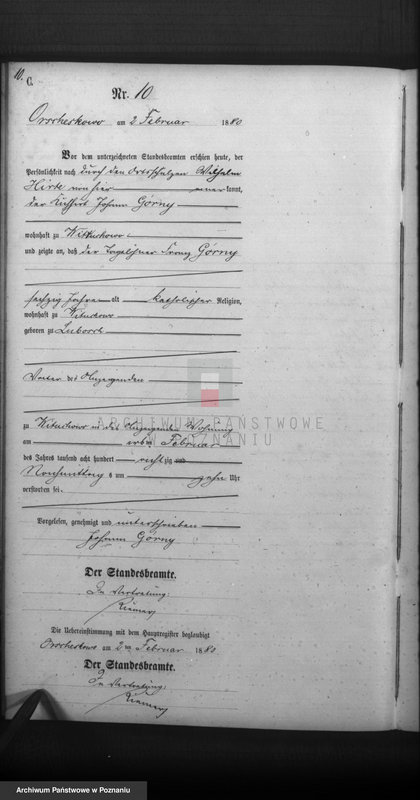 10.
C.
Nr. 10
am 2 Februar 1880
Vor dem unterzeichneten Standesbeamten erschien heute, der
Persönlichkeit nach durch den Ortsschulzen Wilhelm
von hier kannt,
der Johann Górny
wohnhaft zu
und zeigte an, daß der Tagelöhner Franz Górny
sechzig Jahre alt katholischer Religion,
wohnhaft zu
geboren zu
Vater des Anzeigenden
ARCHIWUM PAŃSTWOWE
W POZNANIU
zu in des Anzeigenden Wohnung
am Februar
des Jahres tausend acht hundert achtzig
Nachmittag s um zehn Uhr
verstorben sei.
Vorgelesen, genehmigt und unterschrieben
Johann Górny
Der Standesbeamte.
In Vertretung:
Die Uebereinstimmung mit dem Hauptregister beglaubigt
am 2ten Februar 1880
Der Standesbeamte.
In Vertretung:
Archiwum Państwowe w Poznaniu